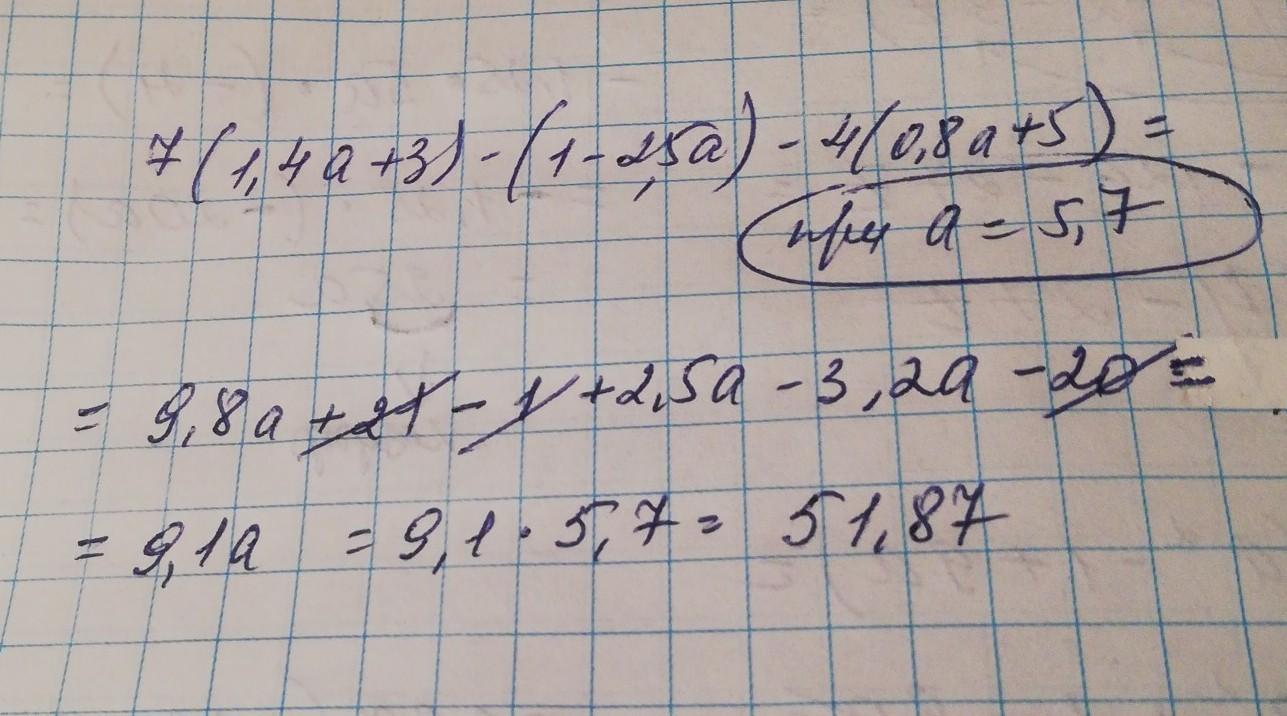 7(1,4a+3)-(1-2,5a)-4(0,8a+5)=
при a=5,7
=9,8a+21-1+2,5a-3,2a-20=
=9,1a =9,1·5,7= 51,87